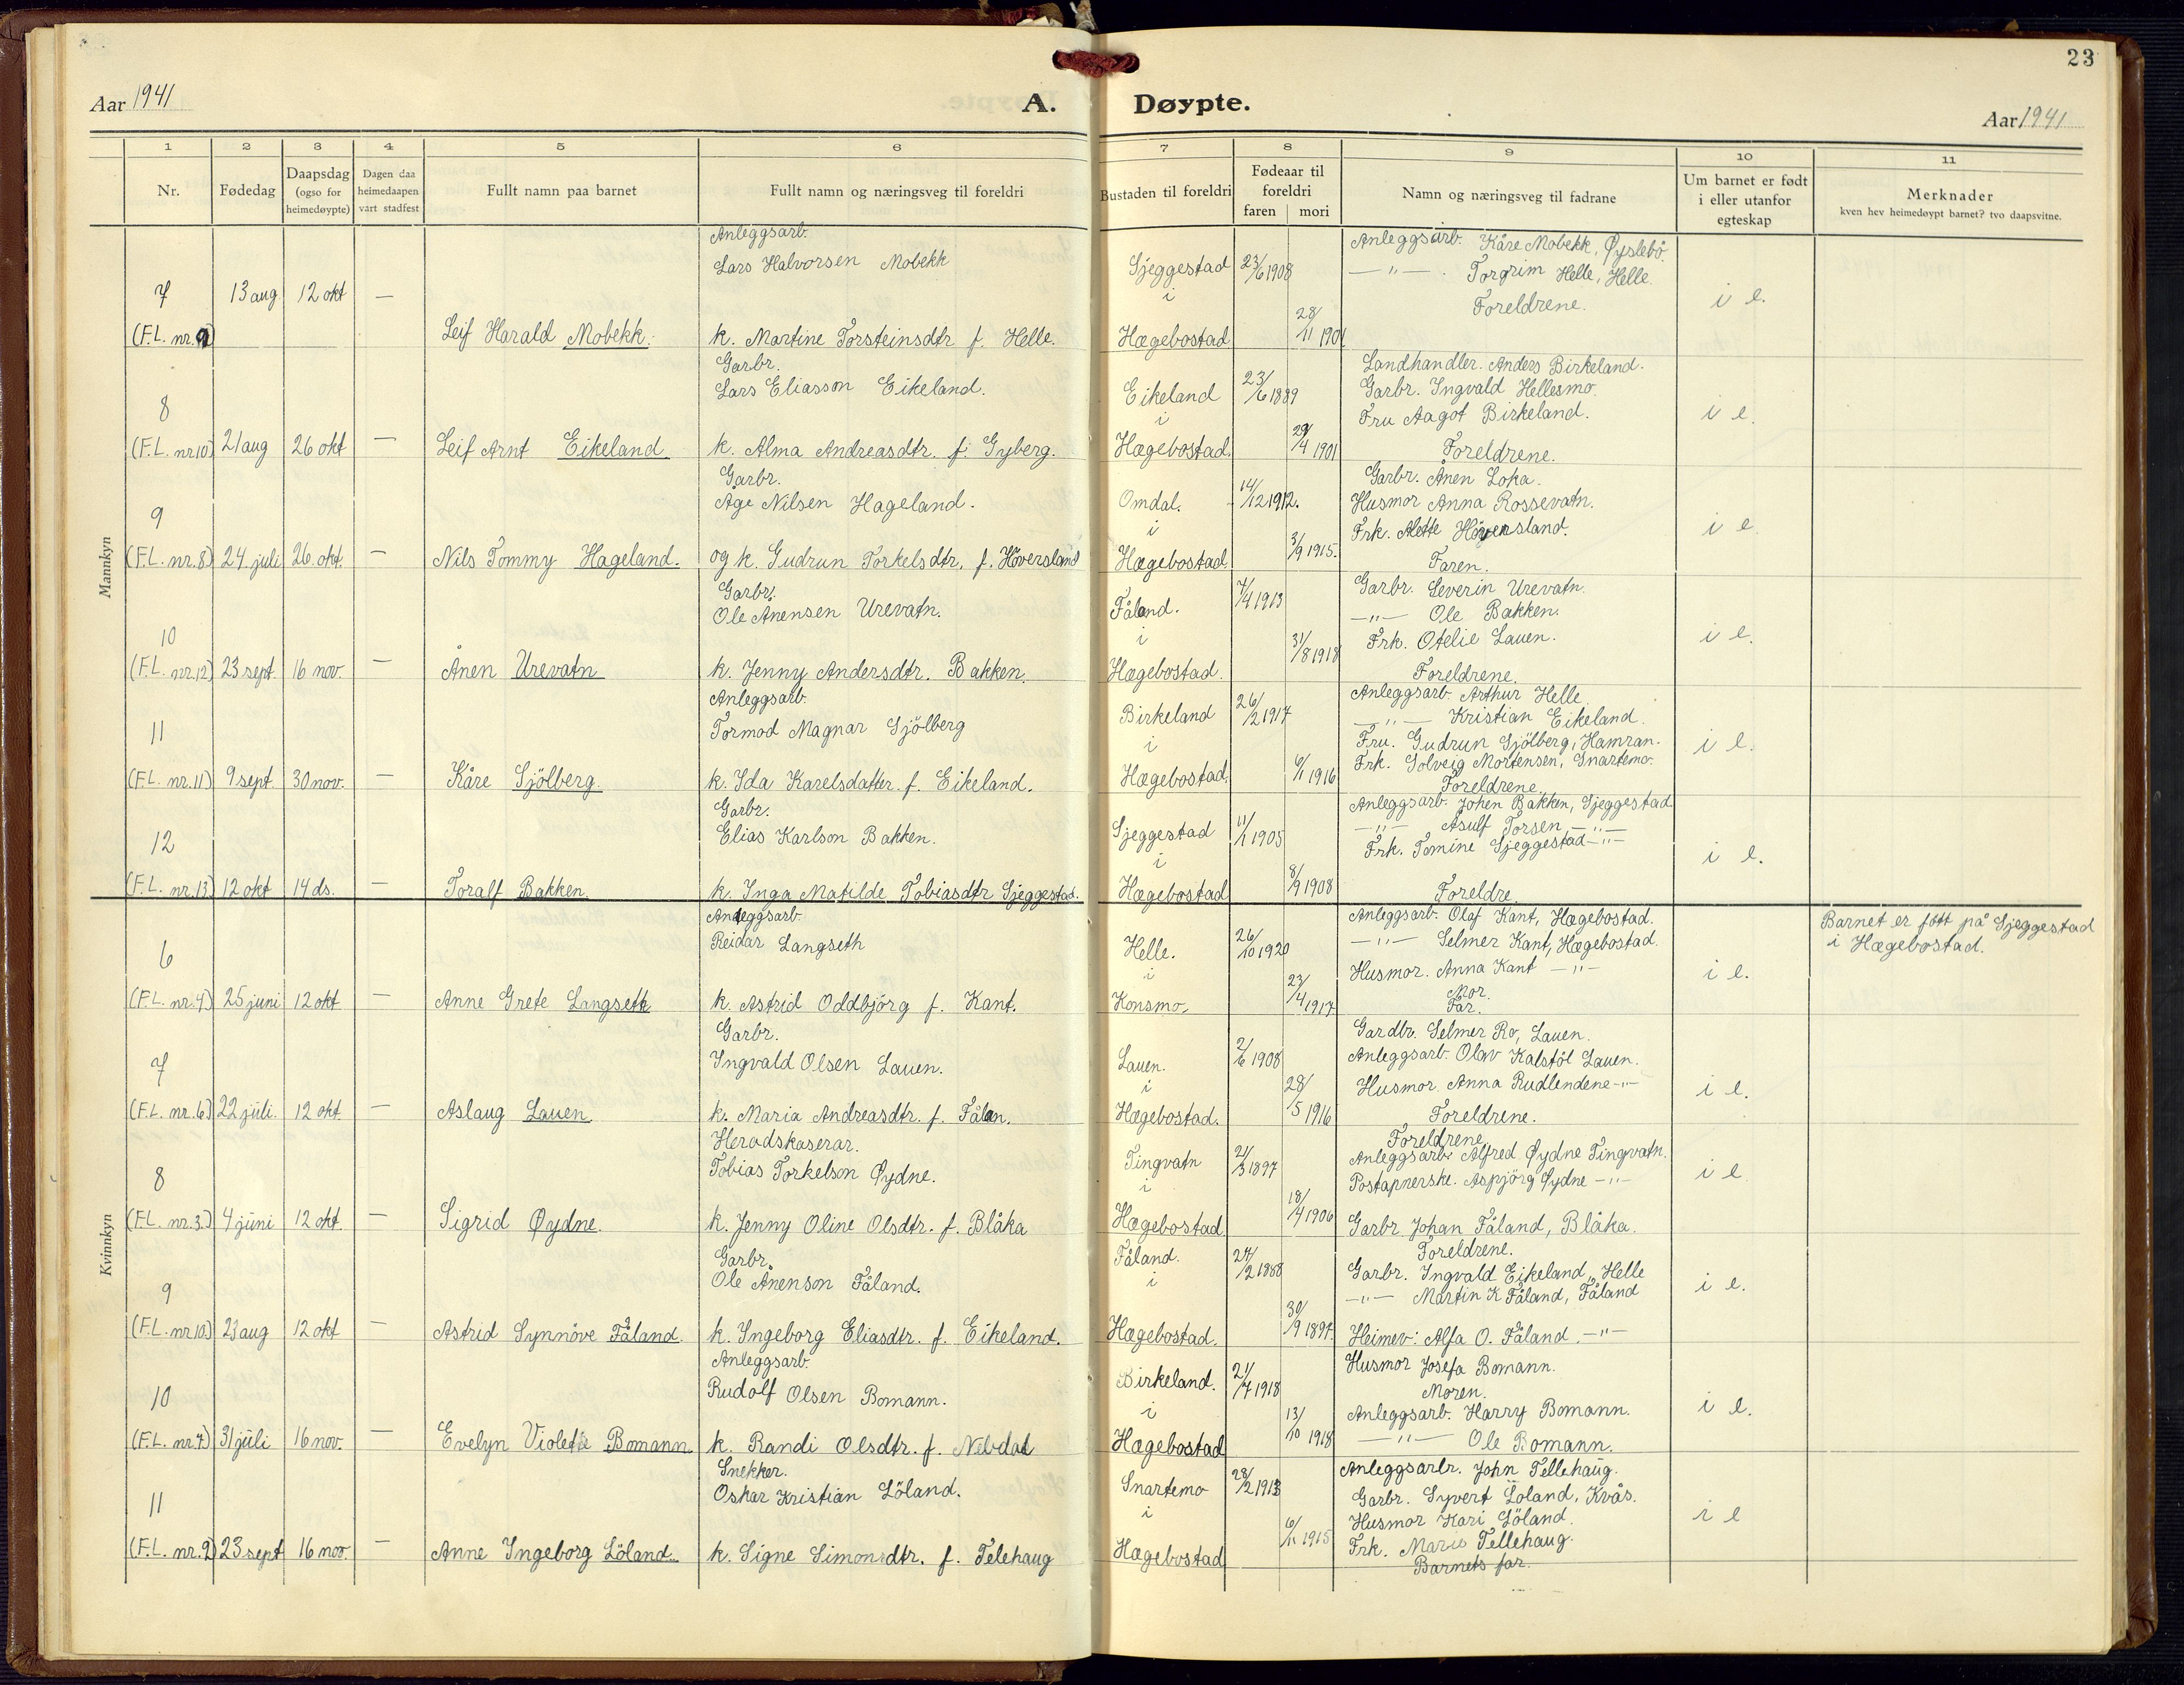 23
Aar 1941
A. Døypte.
Aar 1941
1 2 3 4 5 6 7 8 9 10 11
Nr.
Fødedag
Daapsdag
(ogso for
heimedøypte)
Dagen daa
heimedaapen
vart stadfest
Fullt namn paa barnet
Fullt namn og næringsveg til foreldri
Bustaden til foreldri
Fødeaar til
foreldri
faren mori
Namn og næringsveg til fadrane
Um barnet er født
i eller utanfor
egteskap
Merknader
kven hev heimedøypt barnet? tvo daapsvitne.
Mannkyn
Anleggsarb.
Lars Halvorsen Mobekk
Sjeggestad 23/6 1908
Anleggsarb. Kåre Mobekk, Øyslebö.
—"— . Torgrim Helle, Helle.
7 13 aug 12 okt —
i
Foreldrene.
i e.
(F.L. nr. 9) Leif Harald Mobekk.
k. Martine Torsteinsdtr f. Helle.
Hægebostad 28/11 1901
Garbr.
Lars Eliasson Eikeland.
Eikeland 23/6 1889
Landhandler. Anders Birkeland.
Garbr. Ingvald Hellesmo.
8
i
Fru Aagot Birkeland.
i e.
(F.L. nr 10) 21 aug 26 okt — Leif Arnt Eikeland.
k. Alma Andreasdtr. f. Gyberg.
Hægebostad. 29/4 1901
Foreldrene.
Garbr.
Åge Nilsen Hageland.
Omdal. 14/12 1912.
Garbr. Ånen Loka.
Husmor Anna Rossevatn.
9
i
Frk. Alette Höversland.
i e.
(F.L. nr. 8) 24. juli 26. okt. — Nils Tommy Hageland.
og k. Gudrun Torkelsdtr, f. Höversland
Hægebostad 3/9 1915.
Faren.
Garbr.
Ole Ånensen Urevatn.
Fåland. 7/4 1913
Garbr. Severin Urevatn.
—"— Ole Bakken.
10
i
Frk. Otelie Lauen.
i e.
(F.L. nr. 12) 23 sept. 16 nov. — Ånen Urevatn
k. Jenny Andersdtr. Bakken.
Hægebostad. 31/8 1918
Foreldrene.
Anleggsarb.
Tormod Magnar Sjölberg
Birkeland 26/2 1917
Anleggsarb. Arthur Helle
—"— Kristian Eikeland.
11
i
Fru. Gudrun Sjölberg, Hamran.
Frk. Solveig Mortensen, Snartemo.
i e.
(F.L. nr. 11) 9 sept. 30 nov. — Kåre Sjölberg.
k. Ida Karelsdatter. f. Eikeland.
Hægebostad. 6/1 1916
Foreldrene
Garbr.
Elias Karlson Bakken.
Sjeggestad 11/1 1905
Anleggsarb. Johen Bakken, Sjeggestad
—"— Asulf Torsen —"—
12
i
Frk. Tomine Sjeggestad —"—
i e.
(F.L. nr. 13) 12 okt 14 ds. — Toralf Bakken.
k. Inga Matilde Tobiasdtr Sjeggestad.
Hægebostad 8/9 1908
Foreldre.
Kvinnkyn
Anleggsarb.
Reidar Langseth
Helle. 26/10 1920
Anleggsarb. Olaf Kant, Hægebostad.
—"— Selmer Kant, Hægebostad.
Barnet er fött på Sjeggestad
i Hægebostad.
6
i
Husmor. Anna Kant —"—
Mor.
i e.
(F.L. nr. 4) 25 juni 12 okt — Anne Grete Langseth
k. Astrid Oddbjörg f. Kant.
Konsmo. 23/4 1917
Far.
Garbr.
Ingvald Olsen Lauen.
Lauen. 2/6 1908
Gardbr. Selmer Ro, Lauen.
Anleggsarb. Olav Kalstöl Lauen.
7
i
Husmor. Anna Rudlendene —"—
i e.
(F.L. nr. 6.) 22 juli. 12 okt. — Aslaug Lauen
k. Maria Andreasdtr. f. Fålan.
Hægebostad. 28/5 1916
Foreldrene.
Heradskaserar.
Tobias Torkelson Øydne.
Tingvatn 2/3 1897
Foreldrene
Anleggsarb. Alfred Øydne Tingvatn.
8
i
Postapnerske. Aspjörg Øydne —"—
i e
(F.L. nr. 3.) 4 juni 12 okt. — Sigrid Øydne.
k. Jenny Oline Olsdtr. f. Blåka
Hægebostad 18/4 1906
Garbr Johan Fåland, Blåka.
Garbr.
Ole Ånenson Fåland.
Fåland. 24/2 1888
Foreldrene.
Garbr. Ingvald Eikeland, Helle
9
i
—"— Martin K Fåland, Fåland
i e.
(F.L. nr 10.) 23 aug 12 okt — Astrid Synnöve Fåland.
k. Ingeborg Eliasdtr. f. Eikeland.
Hægebostad. 30/9 1897.
Heimev: Alfa O. Fåland. —"—
Anleggsarb.
Rudolf Olsen Bomann.
Birkeland. 21/7 1918
Husmor Josefa Bomann.
Moren.
10
i
Anleggsarb. Harry Bomann.
i e.
(F.L. nr. 7.) 31 juli 16 nov. — Evelyn Violette Bomann
k. Randi Olsdtr. f. Nebdal
Hægebostad 13/10 1918
—"— Ole Bomann.
Snekker.
Oskar Kristian Löland.
Snartemo 28/2 1913
Anleggsarbr. John Tellehaug.
Garbr. Syvert Löland, Kvås.
11
i
Husmor Kari Löland.
i e
(F.L. nr. 9) 23 sept 16 nov. — Anne Ingeborg Löland.
k. Signe Simonsdtr. f. Telehaug
Hægebostad 6/11 1915
Frk. Marie Tellehaug.
Barnets far.